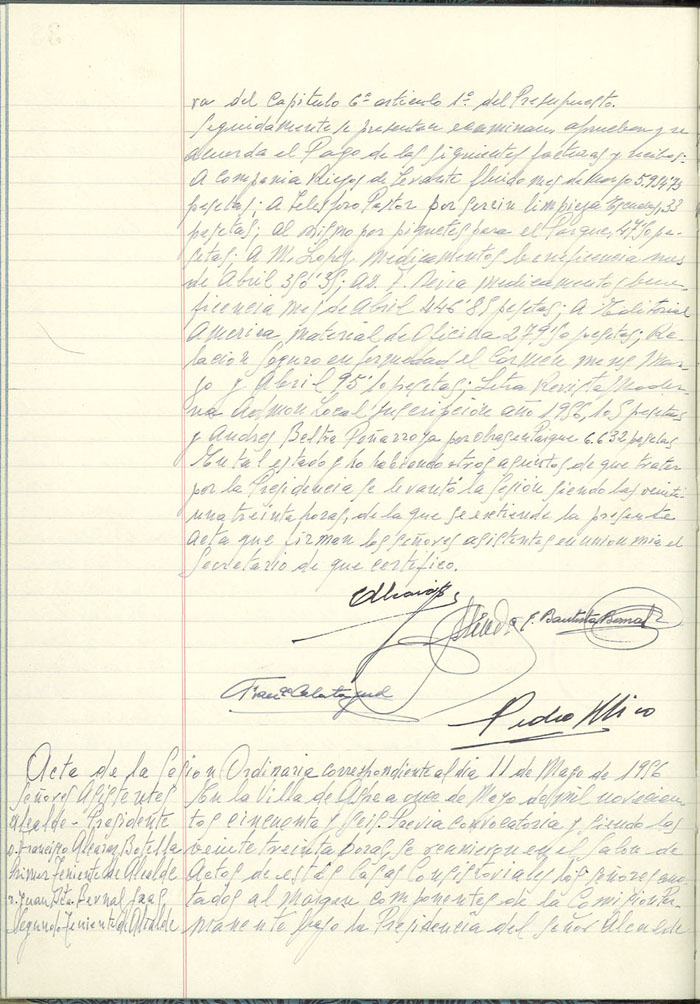 ra del Capitulo 6º articulo 1º del Presupuesto.
Seguidamente se presentan examinan, aprueban y se
acuerda el Pago de las siguientes facturas y recibos:
A Compania Riegos de Levante fluido mes de Marzo 5.934'73
pesetas; A Telesforo Pastor por serrin limpieza Escuelas, 33
pesetas; al mismo por piquetes para el Parque, 47'50 pe-
setas; A M. Lopez medicamentos beneficencia mes
de Abril 350'35; a D. F. medicamentos bene-
ficencia mes de Abril 446'85 pesetas; A Editorial
America, material de Oficina 279'50 pesetas; Re-
lacion Seguro enfermedad el Carmen meses Mar-
zo y Abril 95'10 pesetas; Letra Revista Moder-
na Admon Local suscripción año 1956, 105 pesetas
y Andres Beltra Peñarroya por obras en Parque 6.632 pesetas
En tal estado y no habiendo otros asuntos de que tratar
por la Presidencia se levantó la Sesión siendo las veinti
una treinta horas, de la que se extiende la presente
acta que firman los señores asistentes en union mia el
Secretario de que certifico.
J. Bautista Bernal
Franco Calatayud
Pedro Mico
Acta de la Sesion Ordinaria correspondiente al dia 11 de Mayo de 1956
Señores Asistentes
Alcalde-Presidente
D. Francisco Alcaraz Botella
Primer Teniente de Alcalde
D. Juan Bta. Bernal
Segundo Teniente de Alcalde
En la Villa de Aspe a once de Mayo de mil novecien
tos cincuenta y seis. Previa convocatoria y siendo las
veinte treinta horas, se reunieron en el Salon de
Actos de estas Casas Consistoriales los señores ano
tados al margen componentes de la Comisión Per-
manente bajo la Presidencia del Señor Alcalde